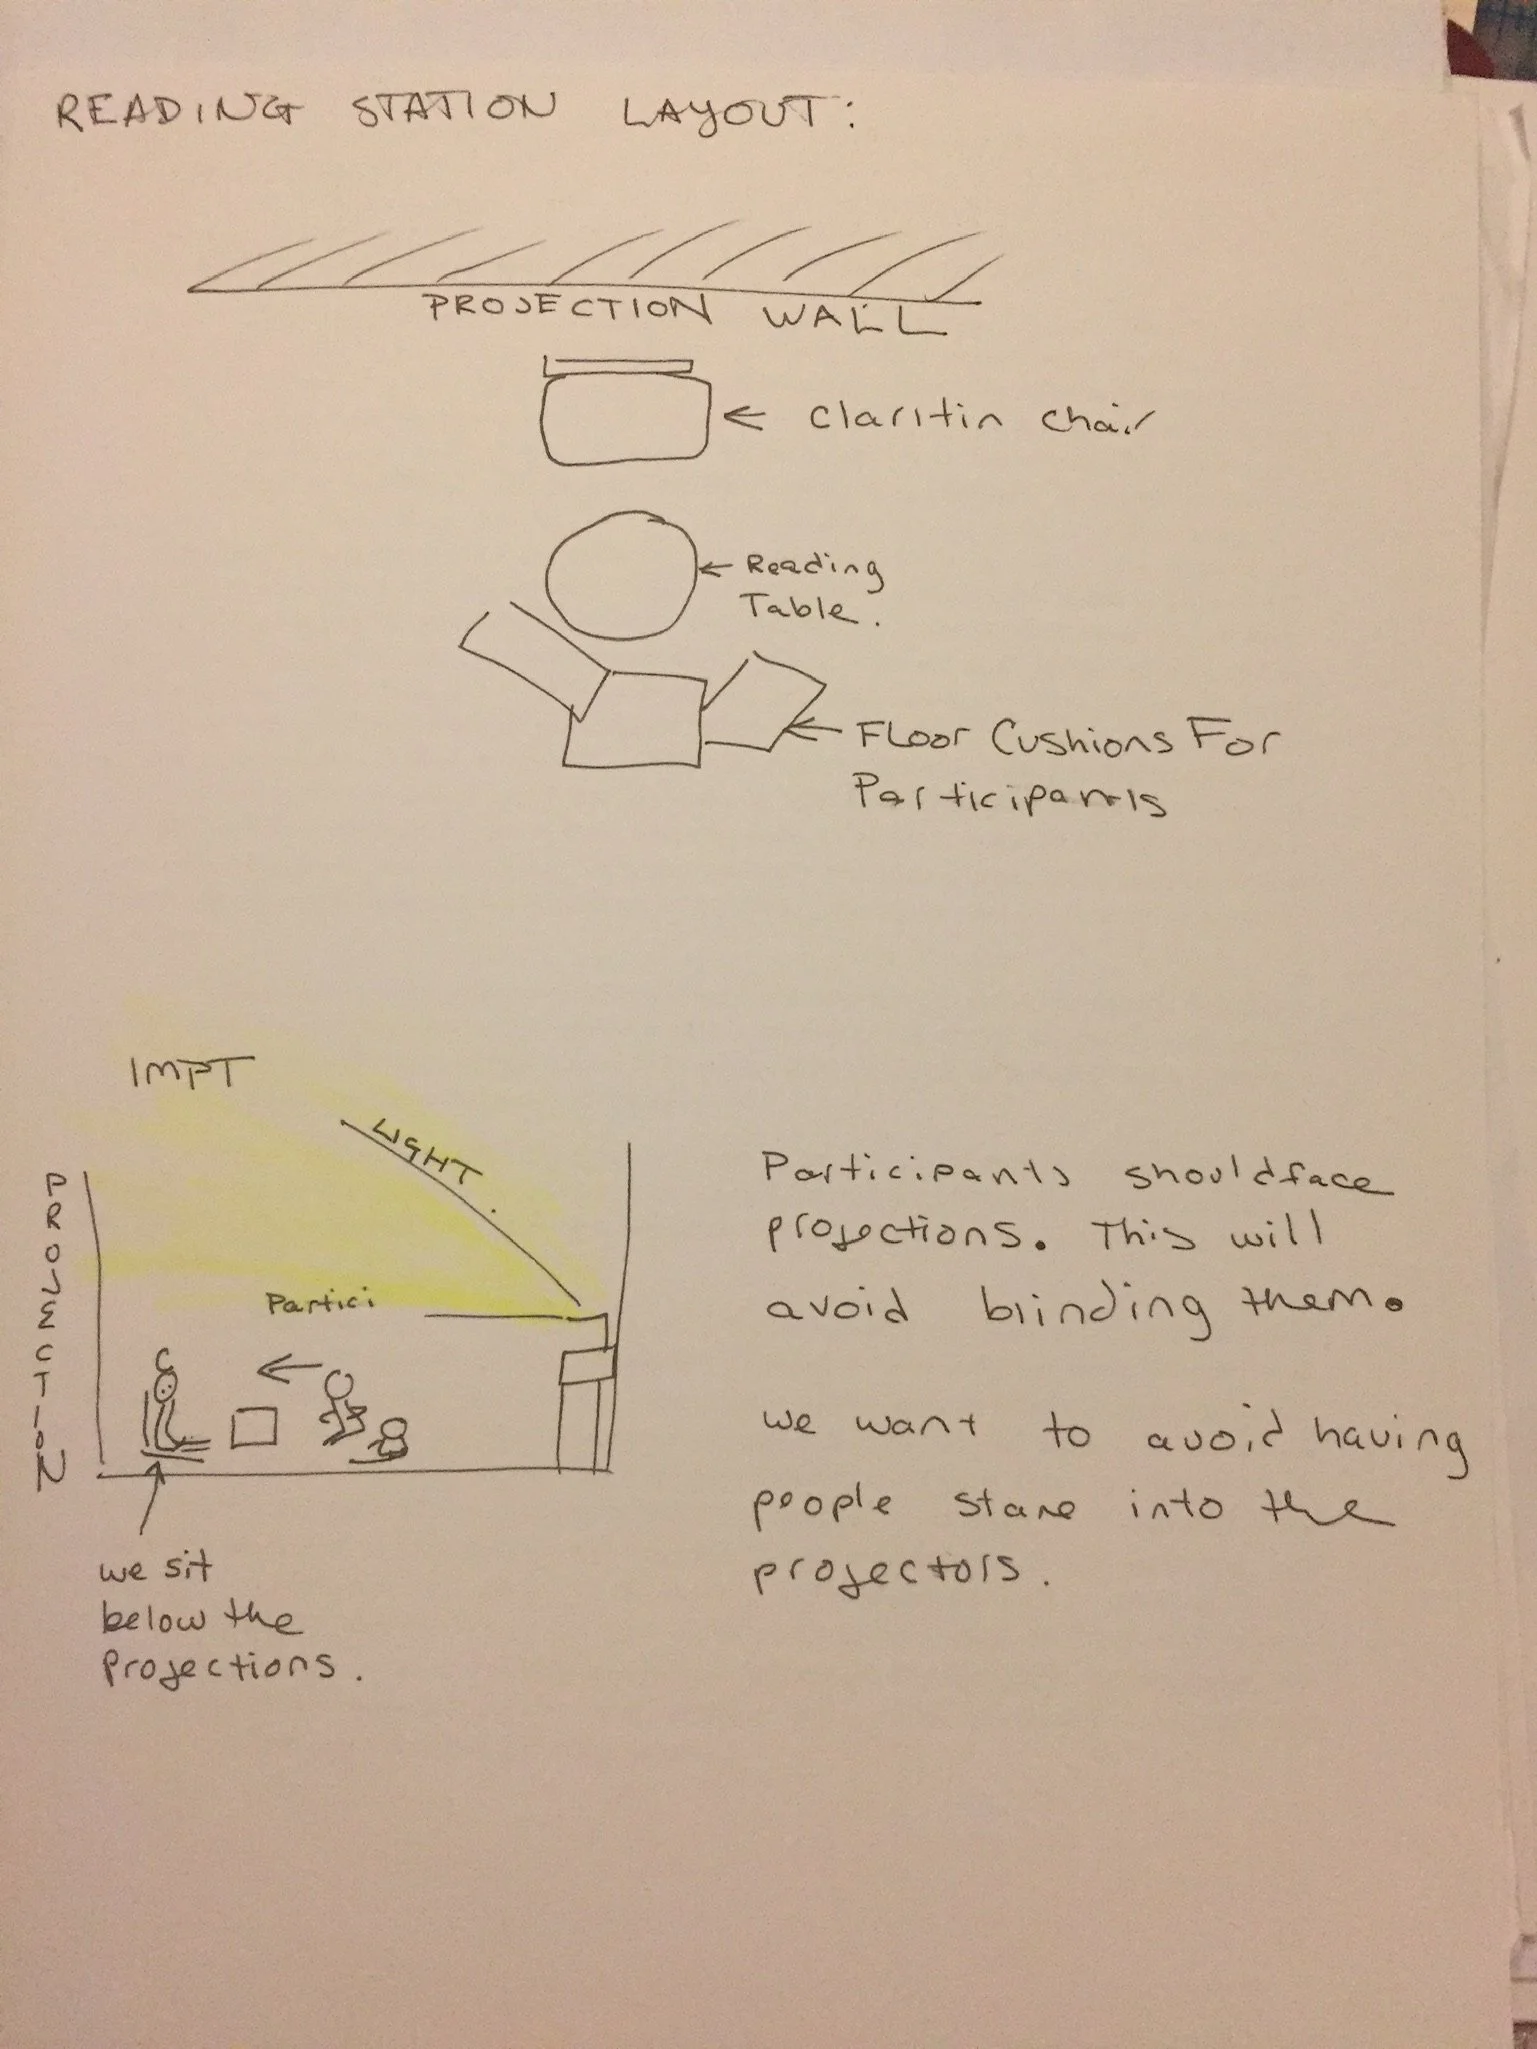 READING STATION LAYOUT:
PROJECTION WALL
← Claritin chair
← Reading
Table.
← FLOOR CUSHIONS FOR
Participants
IMPT
LIGHT
PROJECTION
Partici
we sit
below the
projections.
Participants should face
projections. This will
avoid blinding them.
we want to avoid having
people stare into the
projectors.